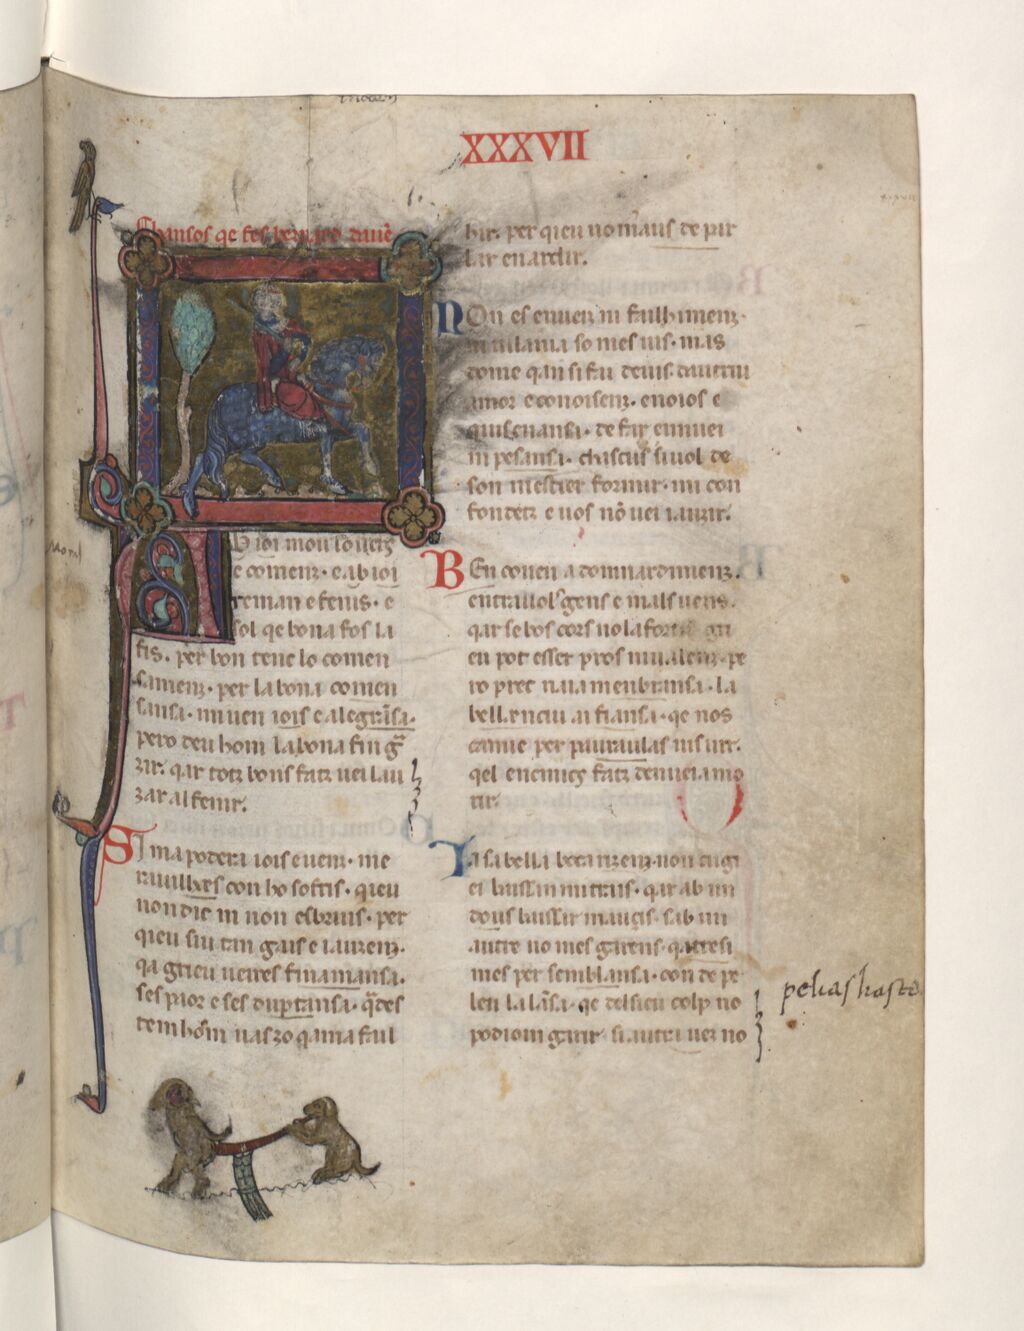 XXXVII
Chansos qe fes bernart
Ab ioi mou lo uers
e comenz· e ab ioi
reman e fenis· e
sol qe bona fos la
fis. per bon tenc lo comen
samenz· per la bona comen
sansa· mi uen iois e alegrãsa·
pero deu hom la bona fin gra
zir. qar totz bons fatz uei lau
zar al fenir.
SI ma podera iois e uenz· me
rauilhes con ho sofris· qieu
non dic ni non esbruis· per
qieu sui tan gais e iauzenz·
qa grieu ueires fin amansa·
ses paor e ses duptansa· qades
tem hõm uas zo qama fail
hir. per qieu no maus de par
lar enardir.
NOn es enueu ni failhimenz·
ni uilania so mes uis· mas
dome qan si fai deuis dautrui
amor e conoisenz. enoios e
qius enansa· de far ennuei
ni pesansa· chascus si uol de
son mestier formir· mi con
fondetz e uos nõ uei iauzir.
BEn couen a domnardimenz.
entrauols gens e mals uezis.
qar se bos cors no la fortis greu
en pot esser pros ni ualenz· pe
ro prec naia menbransa· la
bella en cui ai fiansa· qe nos
camie per paraulas ni s uire.
qel enemics fatz denueia mo
rir.
Ia sa bella boca rizenz· non cugi
ei baissan mi trais· qar ab un
dous baissar maucis· sab un
autre no mes garens· qatresi
mes per semblansa· con de pe
leu la lãsa· qe del sieu colp no
podiom garir· si autra uez no
pelias hasta